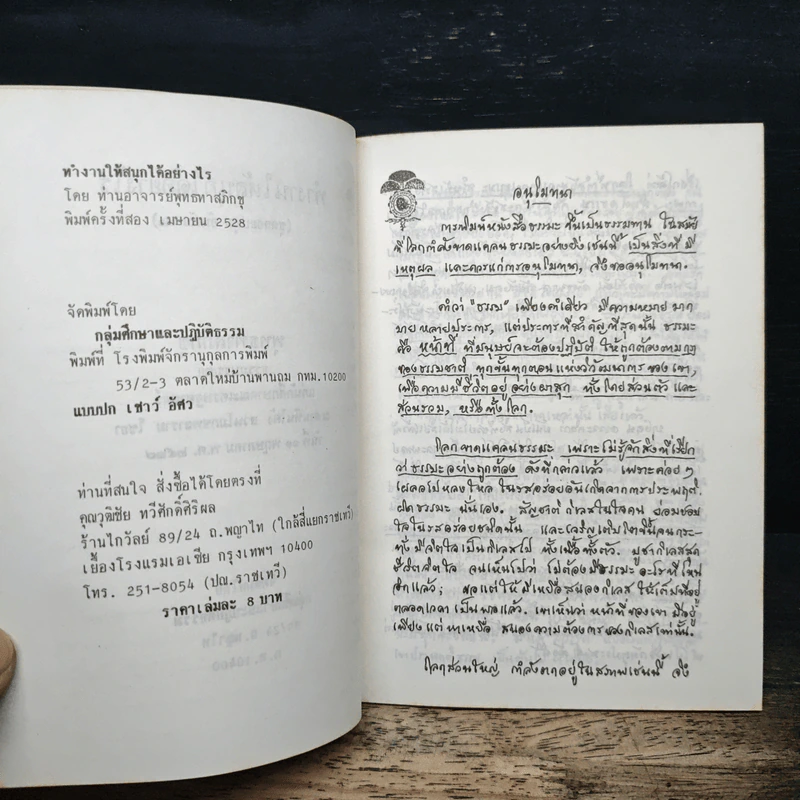 ทำงานให้สนุกได้อย่างไร
โดย ท่านอาจารย์พุทธทาสภิกขุ
พิมพ์ครั้งที่สอง เมษายน 2528
จัดพิมพ์โดย
กลุ่มศึกษาและปฏิบัติธรรม
พิมพ์ที่ โรงพิมพ์จักรานุกูลการพิมพ์
53/2-3 ตลาดใหม่บ้านพานถม กทม.10200
แบบปก เชาว์ อัศว
ท่านที่สนใจ สั่งซื้อได้โดยตรงที่
คุณวุฒิชัย ทวีศักดิ์ศิริผล
ร้านไกวัลย์ 89/24 ถ.พญาไท (ใกล้สี่แยกราชเทวี)
เยื้องโรงแรมเอเซีย กรุงเทพฯ 10400
โทร. 251-8054 (ปณ.ราชเทวี)
ราคาเล่มละ 8 บาท
อนุโมทนา
การพิมพ์หนังสือธรรมะ ขึ้นเป็นธรรมทาน ในสมัย
ที่โลกกำลังขาดแคลนธรรมะอย่างยิ่งเช่นนี้ เป็นสิ่งที่มี
เหตุผล และควรแก่การอนุโมทนา, จึงขออนุโมทนา.
คำว่า "ธรรม" เพียงคำเดียว มีความหมายมาก
มายหลายประการ, แต่ประการที่สำคัญที่สุดนั้น ธรรมะ
คือ หน้าที่ ที่มนุษย์จะต้องปฏิบัติ ให้ถูกต้องตามกฎ
ของธรรมชาติ ทุกขั้นทุกตอนแห่งวิวัฒนาการของเขา,
เพื่อความมีชีวิตอยู่อย่างผาสุก ทั้งโดยส่วนตัว และ
ส่วนรวม, หรือทั้งโลก.
โลกขาดแคลนธรรมะ เพราะไม่รู้จักสิ่งที่เรียก
ว่าธรรมะอย่างถูกต้อง ดังที่กล่าวแล้ว เพราะค่อยๆ
เผลอไปหลงใหล ในรสอร่อยอันเกิดจากการประพฤติ
ผิดธรรมะ นั่นเอง. สัญชาต กิเลสในใจคน ย่อมชอบ
ใจในรสอร่อยชนิดนั้น และเจริญเติบโตขึ้นจนกระ-
ทั่ง มีจิตใจเป็นกิเลสไป ทั้งเนื้อทั้งตัว. บูชากิเลสสุด
ชีวิตจิตใจ จนเห็นไปว่า ไม่ต้องมีธรรมะ อะไรที่ไหน
อีกแล้ว; ขอแต่ให้มีเหยื่อสนองกิเลส ให้เต็มที่อยู่
ตลอดเวลา เป็นพอแล้ว. เขาเห็นว่า หน้าที่ของเขา มีอยู่
เพียงแต่ หาเหยื่อ สนองความต้องการของกิเลสเท่านั้น.
โลกส่วนใหญ่ กำลังตกอยู่ในสภาพเช่นนี้ จึง